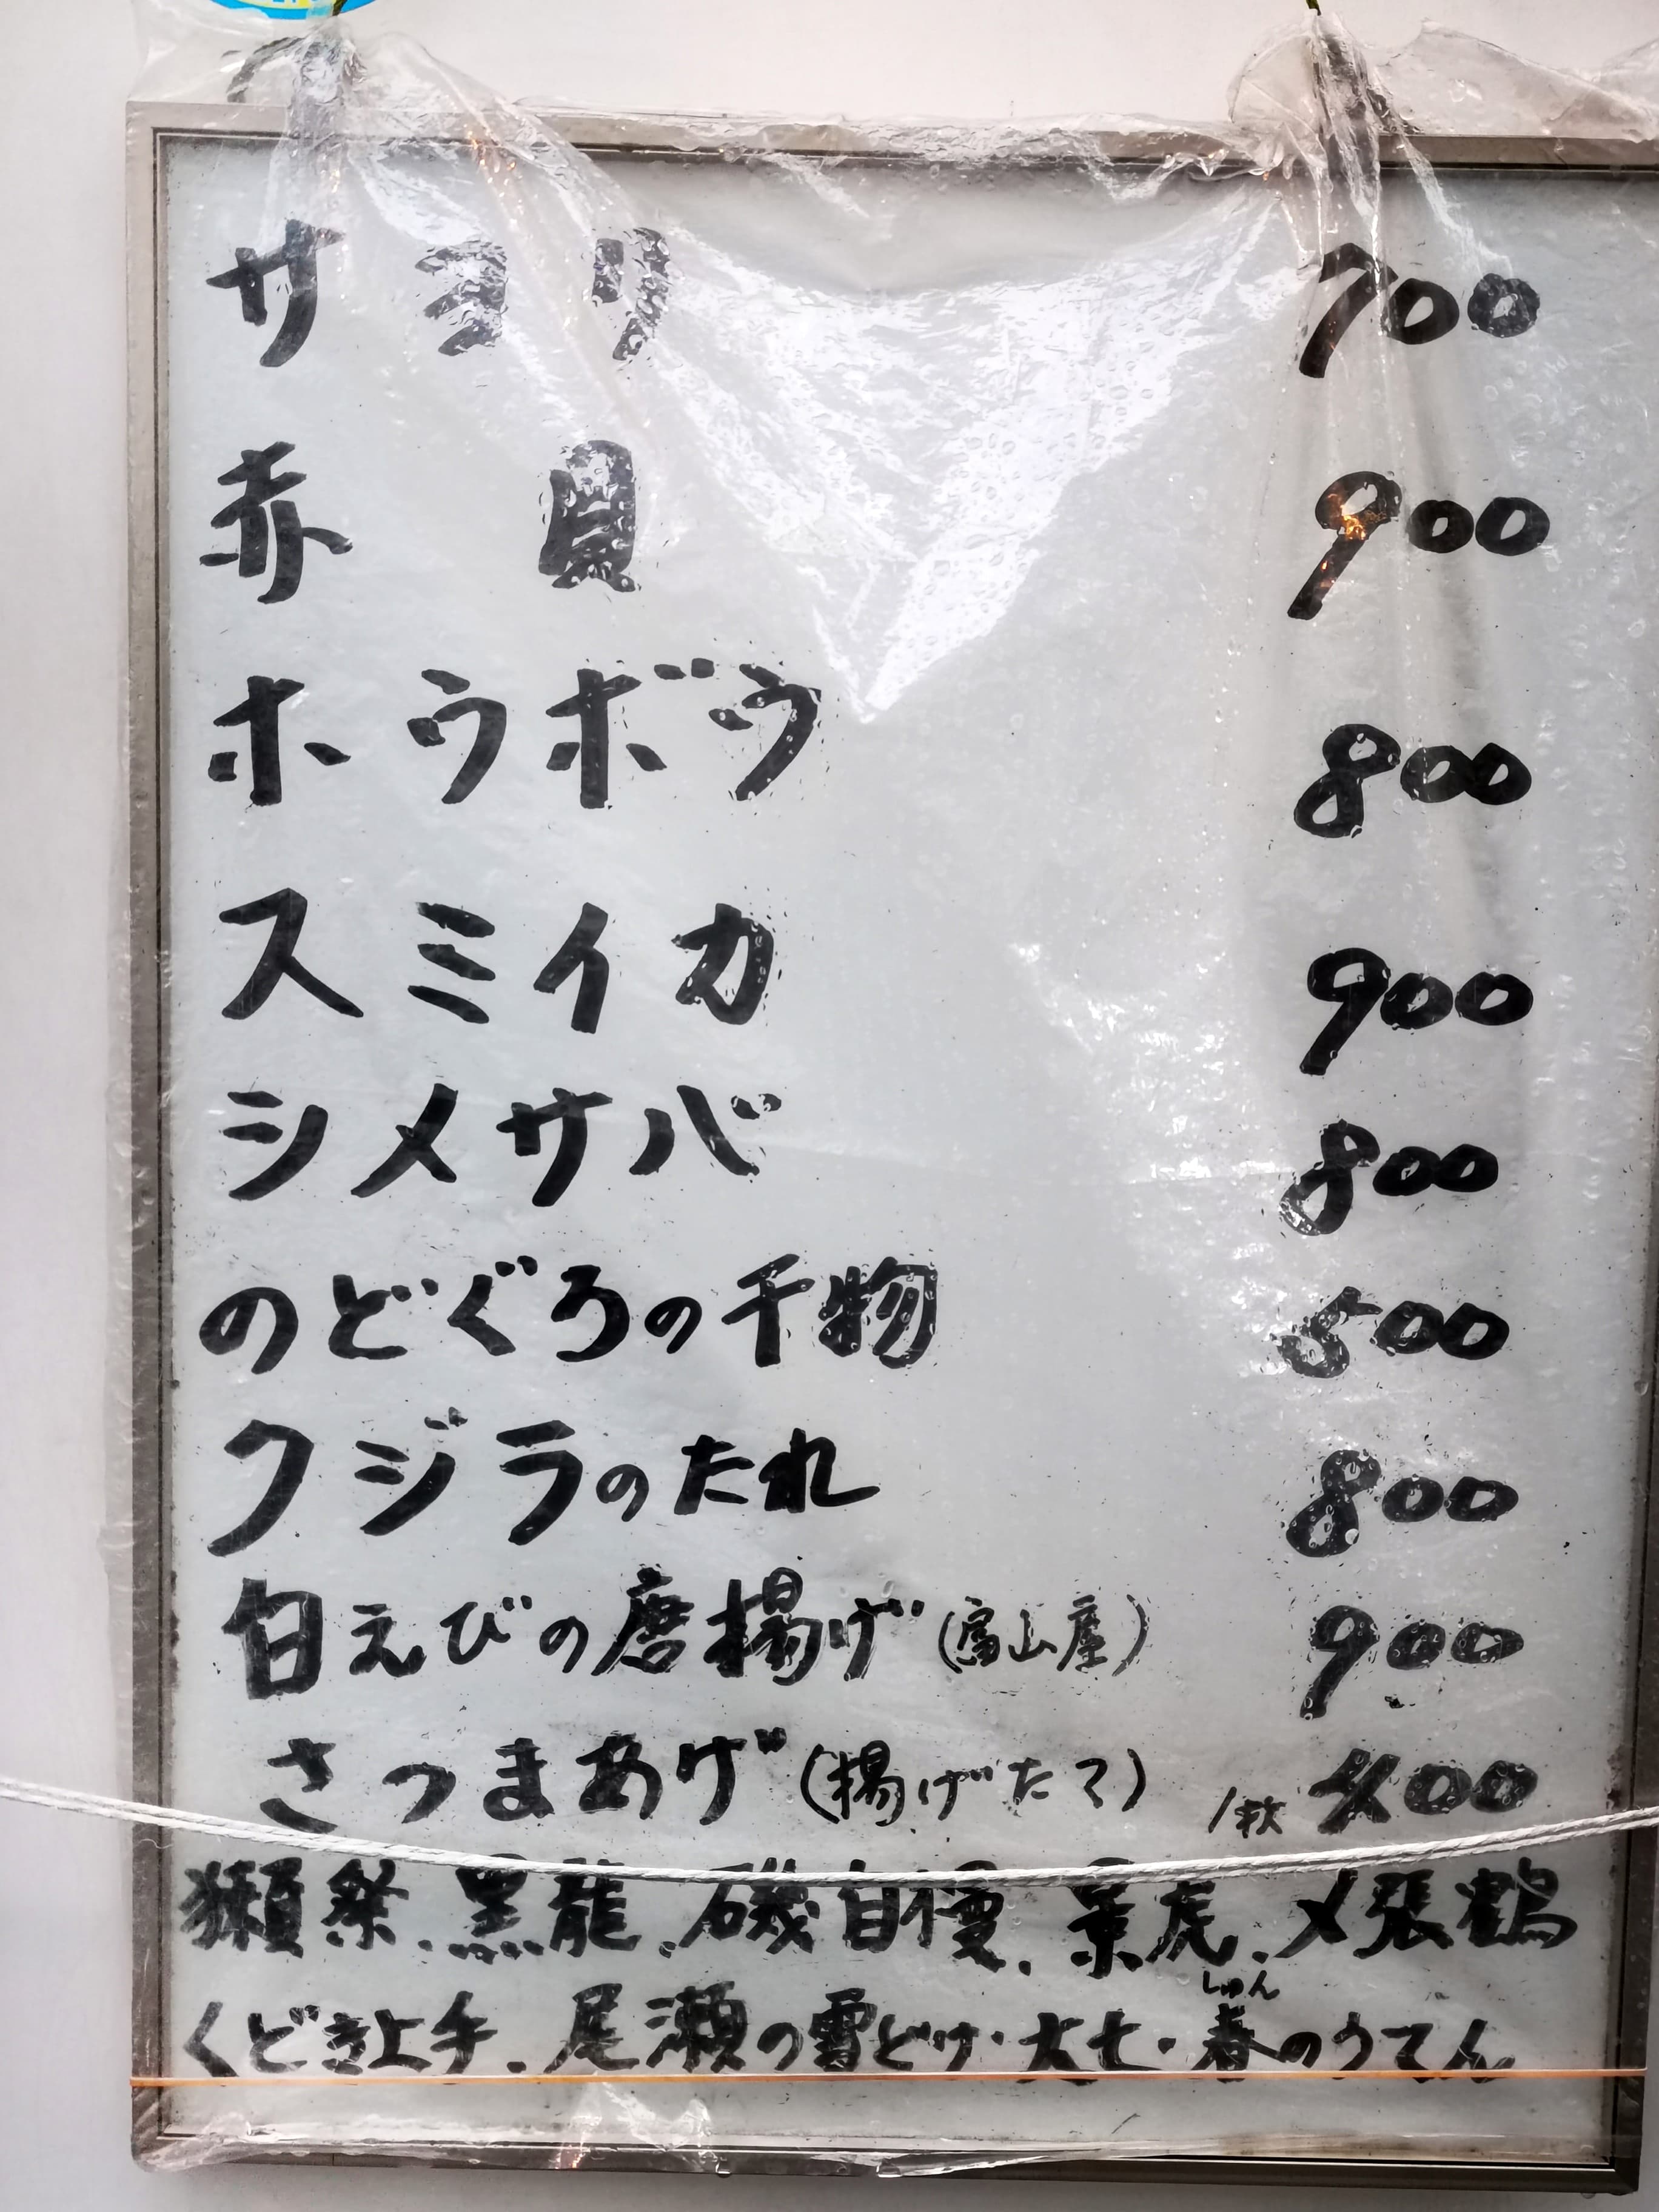 サヨリ 700
赤貝 900
ホウボウ 800
スミイカ 900
シメサバ 800
のどぐろの干物 500
クジラのたれ 800
白えびの唐揚げ(富山産) 900
さつまあげ(揚げたて) 1枚 400
獺祭.黒龍.磯自慢.景虎.〆張鶴
しゅん
くどき上手.尾瀬の雪どけ・大七・春のうてん